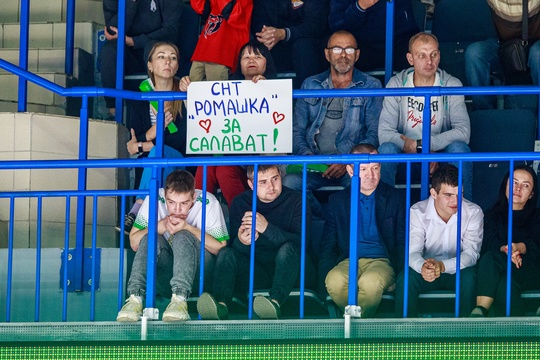 СНТ
"РОМАШКА"
ЗА
САЛАВАТ!